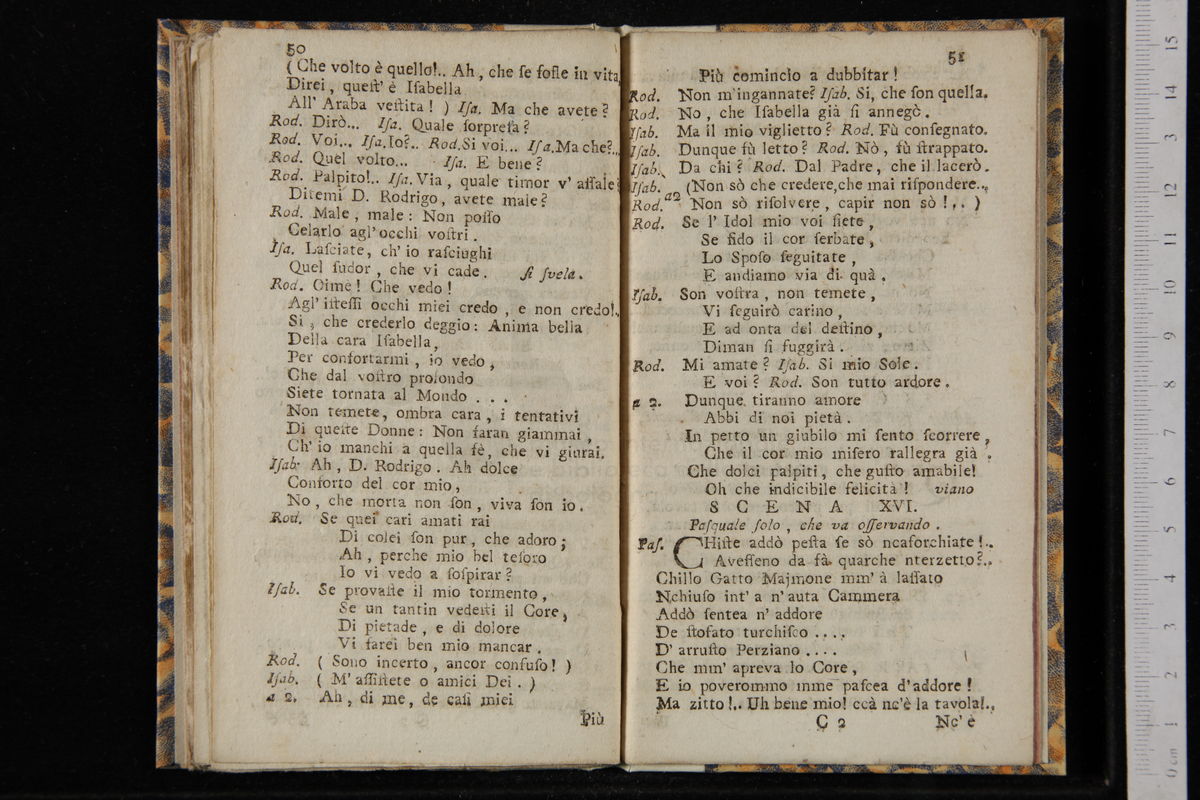 50
( Che volto è quello!.. Ah, che ſe foſſe in vita,
Direi, queſt' è Iſabella
All' Araba veſtita ! ) Iſa. Ma che avete ?
Rod. Dirò... Iſa. Quale ſorpreſa ?
Rod. Voi... Iſa. Io?.. Rod. Si voi... Iſa. Ma che?..
Rod. Quel volto... Iſa. E bene ?
Rod. Palpito!.. Iſa. Via, quale timor v' aſſale?
Ditemi D. Rodrigo, avete male ?
Rod. Male, male : Non poſſo
Celarlo agl' occhi voſtri.
Iſa. Laſciate, ch' io raſciughi
Quel ſudor, che vi cade. ſi ſvela.
Rod. Oime ! Che vedo !
Agl' iſteſſi occhi miei credo, e non credo!.
Si, che crederlo deggio : Anima bella
Della cara Iſabella,
Per confortarmi, io vedo,
Che dal voſtro profondo
Siete tornata al Mondo . . .
Non temete, ombra cara, i tentativi
Di queſte Donne : Non faran giammai,
Ch' io manchi a quella fè, che vi giurai.
Iſab. Ah, D. Rodrigo. Ah dolce
Conforto del cor mio,
No, che morta non ſon, viva ſon io.
Rod. Se quei cari amati rai
Di colei ſon pur, che adoro ;
Ah, perche mio bel teſoro
Io vi vedo a ſoſpirar ?
Iſab. Se provaſte il mio tormento,
Se un tantin vedeſti il Core,
Di pietade, e di dolore
Vi farei ben mio mancar.
Rod. ( Sono incerto, ancor confuſo ! )
Iſab. ( M' aſſiſtete o amici Dei. )
a 2. Ah, di me, de caſi miei
Più
51
Più comincio a dubbitar !
Rod. Non m'ingannate? Iſab. Si, che ſon quella.
Rod. No, che Iſabella già ſi annegò.
Iſab. Ma il mio viglietto ? Rod. Fù conſegnato.
Iſab. Dunque fù letto ? Rod. Nò, fù ſtrappato.
Iſab. Da chi ? Rod. Dal Padre, che il lacerò.
Iſab. (Non sò che credere, che mai riſpondere...
Rod. a2 Non sò riſolvere, capir non sò !.. )
Rod. Se l' Idol mio voi ſiete,
Se fido il cor ſerbate,
Lo Spoſo ſeguitate,
E andiamo via di quà.
Iſab. Son voſtra, non temete,
Vi ſeguirò carino,
E ad onta del deſtino,
Diman ſi fuggirà.
Rod. Mi amate ? Iſab. Si mio Sole.
E voi ? Rod. Son tutto ardore.
a 2. Dunque tiranno amore
Abbi di noi pietà.
In petto un giubilo mi ſento ſcorrere,
Che il cor mio miſero rallegra già.
Che dolci palpiti, che guſto amabile!
Oh che indicibile felicità ! viano
S C E N A XVI.
Paſquale ſolo, che va oſſervando.
Paſ. CHiſte addò peſta ſe sò ncaforchiate !..
Aveſſeno da fà quarche nterzetto?..
Chillo Gatto Majmone mm' à laſſato
Nchiuſo int' a n' auta Cammera
Addò ſentea n' addore
De ſtofato turchiſco ....
D' arruſto Perziano ....
Che mm' apreva lo Core,
E io poverommo mme paſcea d'addore !
Ma zitto !.. Uh bene mio! ccà nc'è la tavola!..
C 2
Nc' è